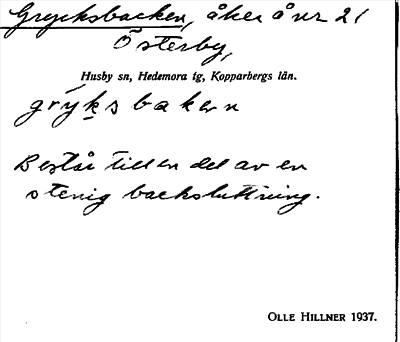 Grycksbacken, åker å nr 21
Österby,
Husby sn, Hedemora tg, Kopparbergs län.
grýksbakən
Består till en del av en
stenig backsluttning.
OLLE HILLNER 1937.